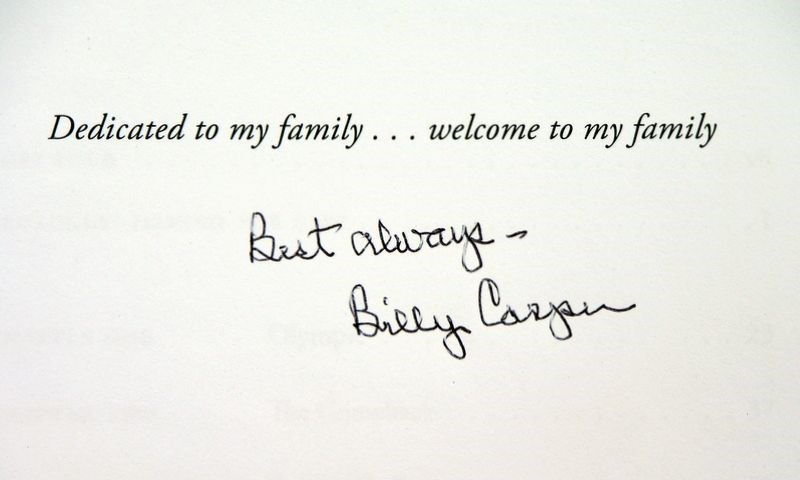 Dedicated to my family . . . welcome to my family
Best always –
Billy Casper